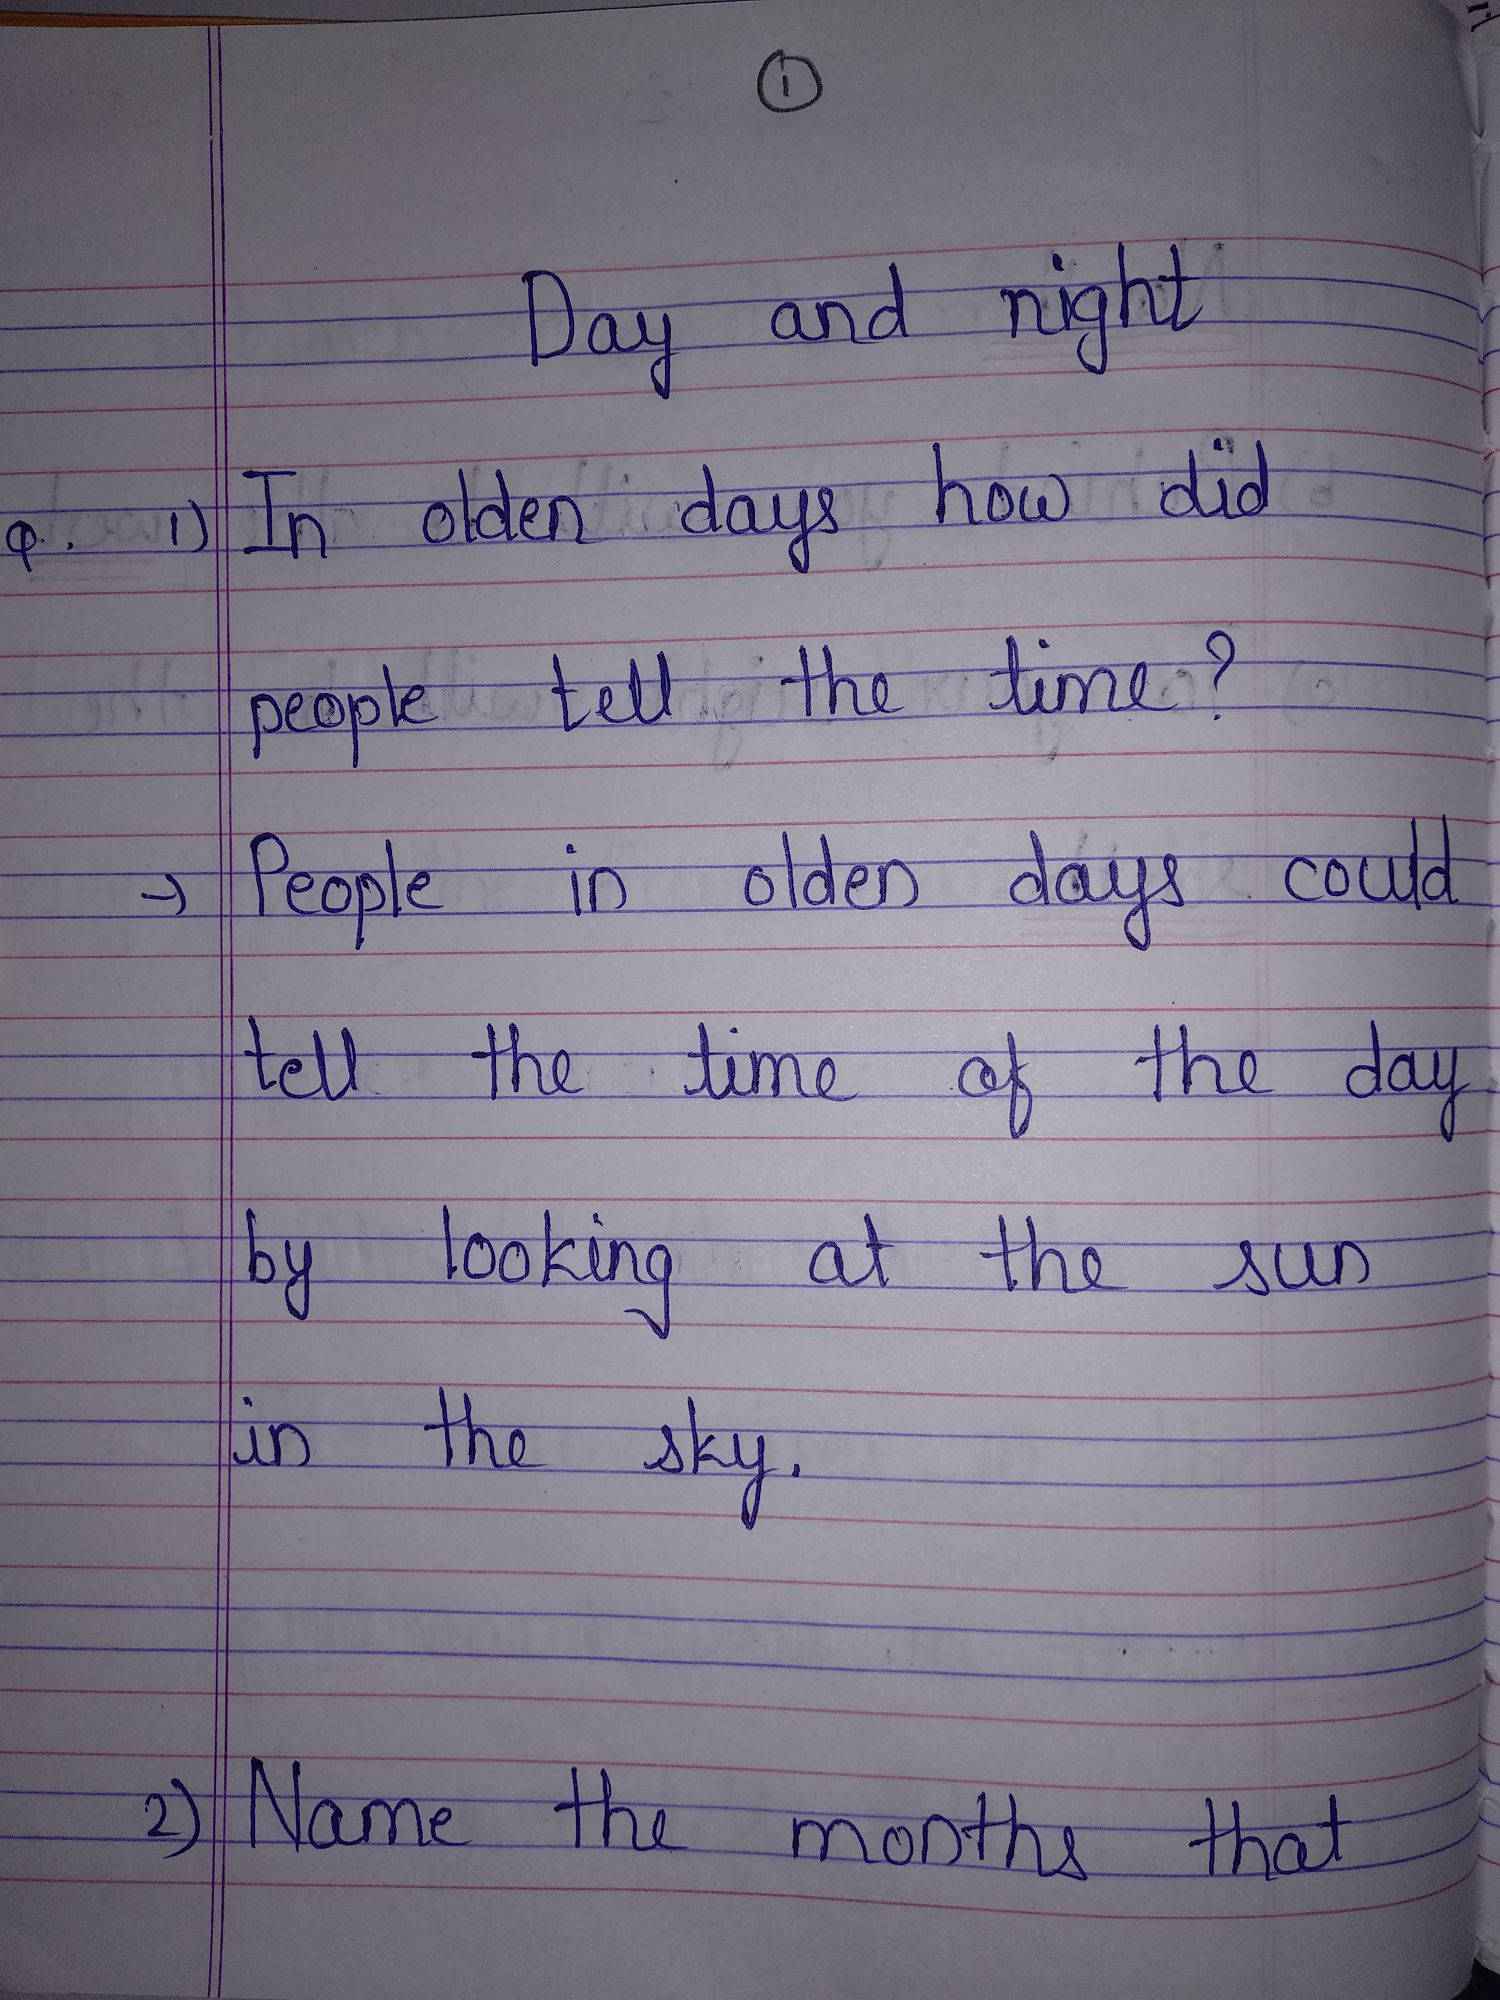 1
Day and night
Q. 1) In olden days how did
people tell the time?
→ People in olden days could
tell the time of the day
by looking at the sun
in the sky.
2) Name the months that